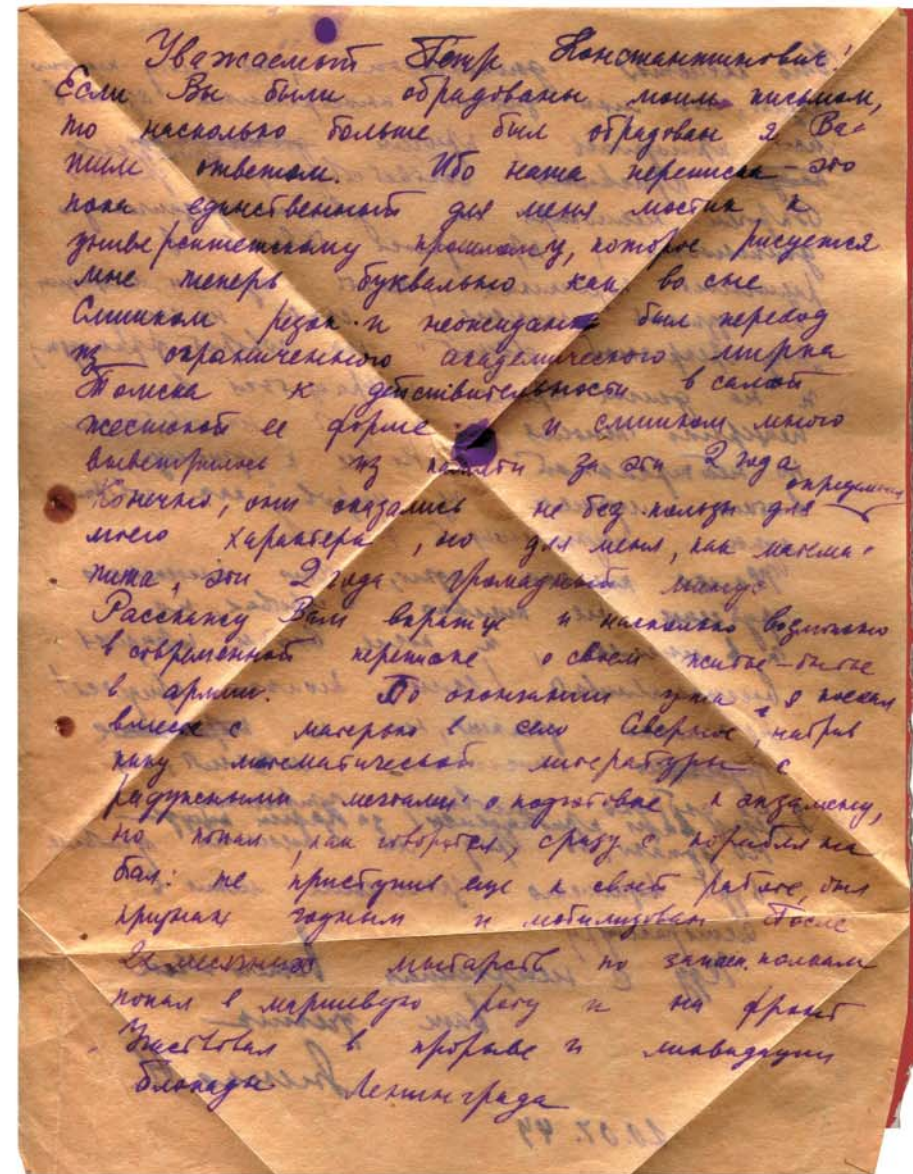 Уважаемый Петр Константинович!
Если Вы были обрадованы моим письмом,
то насколько больше был обрадован я Ва-
шим ответом. Ибо наша переписка это
пока единственный для меня мостик к
университетскому прошлому, которое рисуется
мне теперь буквально как во сне
Слишком резок и неожидан был переход
из ограниченного академического мирка
Томска к действительности в самой
жестокой ее форме и слишком много
выветрилось из памяти за эти 2 года
Конечно, они оказались не без пользы для определения
моего характера, но для меня, как матема-
тика, эти 2 года громадный минус
Расскажу Вам вкратце и насколько возможно
в современной переписке о своем житье-бытье
в армии. По окончании я поехал
вместе с матерью в село Северное, набрав
кипу математической литературы с
радужными мечтами о подготовке к экзамену,
но попал, как говорится, сразу с корабля на
бал: не приступив еще к своей работе, был
признан годным и мобилизован После
2х месячных мытарств по запасн. полкам
попал в маршевую роту и на фронт
Участвовал в прорыве и ликвидации
блокады Ленинграда